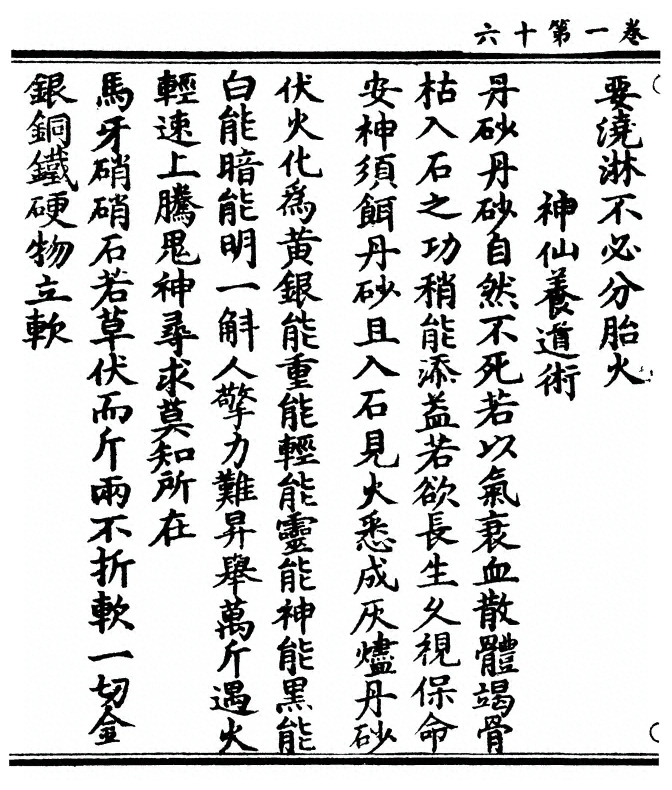 卷一第十六
要澆淋不必分胎火
神仙養道術
丹砂丹砂自然不死若以氣衰血散體竭骨
枯入石之功稍能添益若欲長生久視保命
安神須餌丹砂且入石見火悉成灰燼丹砂
伏火化爲黃銀能重能輕能靈能神能黑能
白能暗能明一斛人擎力難昇舉萬斤遇火
輕速上騰鬼神尋求莫知所在
馬牙硝硝石若草伏而斤兩不折軟一切金
銀銅鐵硬物立軟